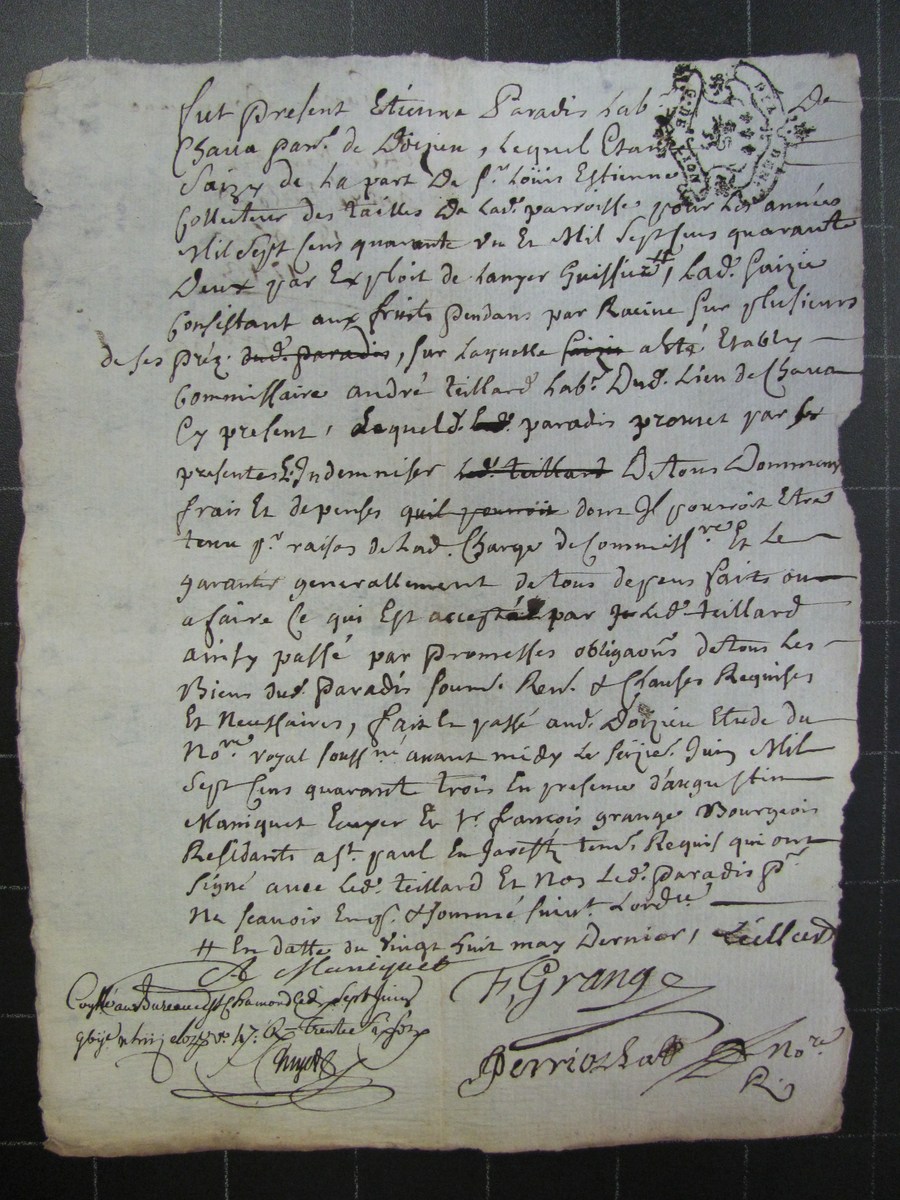 fut present Etienne Paradis Labr. De
Chava parr. de Doizieu, Lequel Etant
Saizy de La part De sr. Loüis Estienne
Collecteur des tailles De Lad. parroisse pour Les années
Mil Sept Cens quarante un Et Mil Sept Cens quarante
Deux par Exploit de Huissier #, Lad. Saizie
Consistant aux fruits pendans par Racine Sur plusieurs
de ses préz. dud. paradis, sur Laquelle saizie a été Etably
Commissaire andré teillard Labr. Dud. Lieu de Chava
Cy present, Lequel d. Led. paradis promet par ses
presentes L'Indemniser Led. teillard De tous Dommages
frais Et depenses quil pourroit dont Il pourroit Etre
tenu pr. raison de Lad. Charge de Commissre. Et Le
garantir generallement de tous depens faits ou
a faire Ce qui Est accepté par Led. teillard
ainsy passé par promesses obligaons. de tous Les
Biens dud. Paradis soumis. Ren. & Clauses Requises
Et Necessaires, fait Et passé aud. Doizieu Etude du
Nore. royal soussné. avant midy Le Juin Mil
Sept Cens quarante trois En presence d'augustin
Maniquet Ecuyer Et sr. françois grange Bourgeois
Residants a st. paul En Jarestz tem. Requis qui ont
Signé avec Led. teillard Et Non Led. paradis pr.
Ne scavoir Enqs. & sommé suivt. Lordce.
# En datte du vingt huit may Dernier, teillard
A Maniquet
F, Grange
Conllé au Bureau de st Chamond Le Sept Juin
Perriochat Nore.
R.